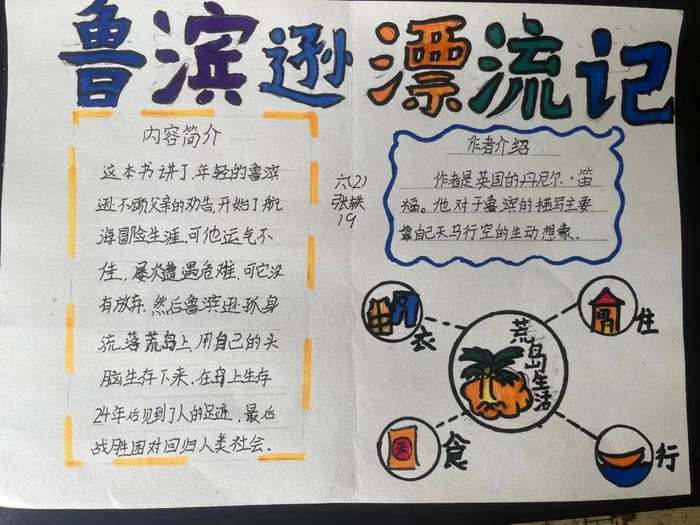 鲁滨逊漂流记
内容简介
这本书讲了,年轻的鲁滨
逊不顾父亲的劝告,开始了航
海冒险生涯,可他运气不
佳,屡次遭遇危难,可它没
有放弃.然后鲁滨逊孤身
流落荒岛上,用自己的头
脑生存下来,在岛上生存
24年后见到了人的足迹,最后
战胜困对回归人类社会.
六(2)
张轶
19
作者介绍
作者是英国的丹尼尔·笛
福。他对于鲁滨的描写主要
靠自己天马行空的生动想象。
荒岛生活
衣
住
食
行